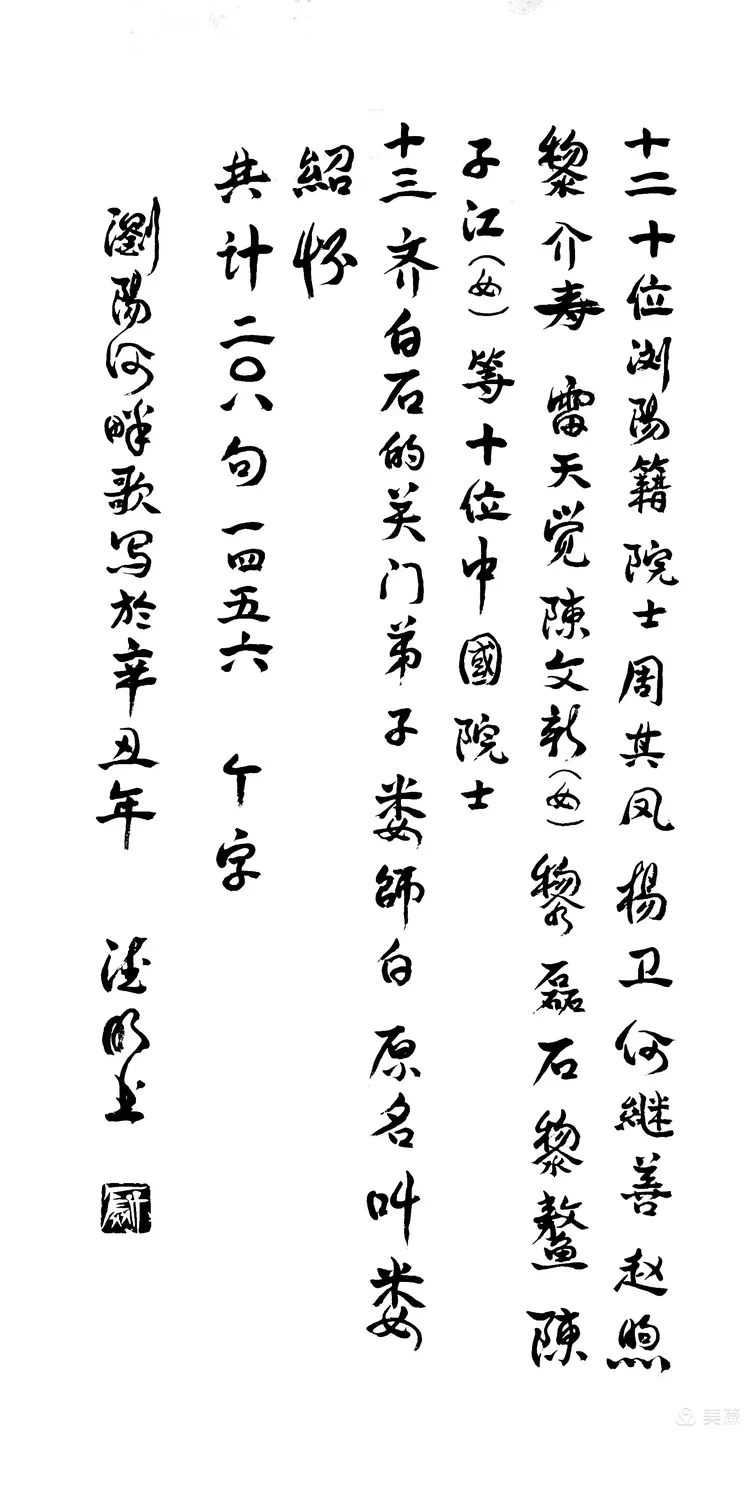 十二十位浏陽籍院士周其凤楊卫何継善赵煦
黎介寿 雷天觉陳文新(女)黎磊石黎鳌陳
子江(女)等十位中國院士
十三齐白石的关门弟子娄師白原名叫娄
紹怀
共计二〇八句一四五六个字
瀏陽河畔歌写於辛丑年 德明书
美篇